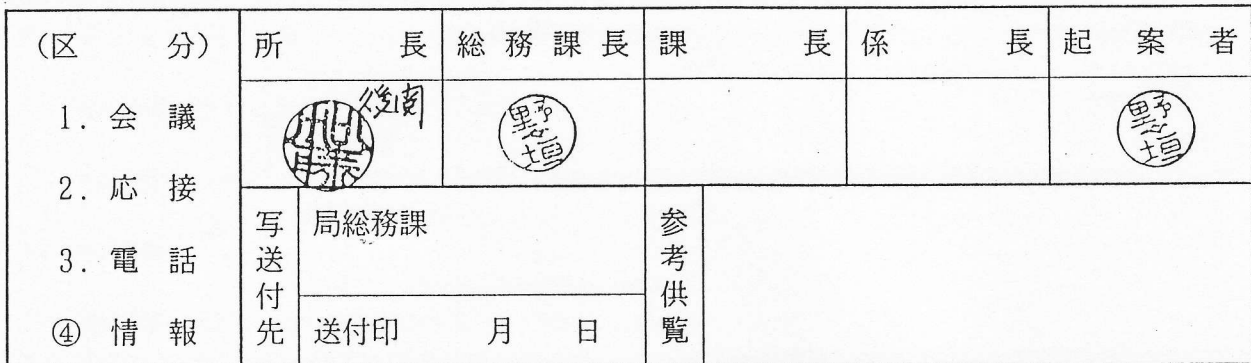 (区 分) 所 長 総務課長 課 長 係 長 起案者
1. 会 議
後閲
野垣
野垣
2. 応 接
3. 電 話
④ 情 報
写送付先
局総務課
送付印 月 日
参考供覧